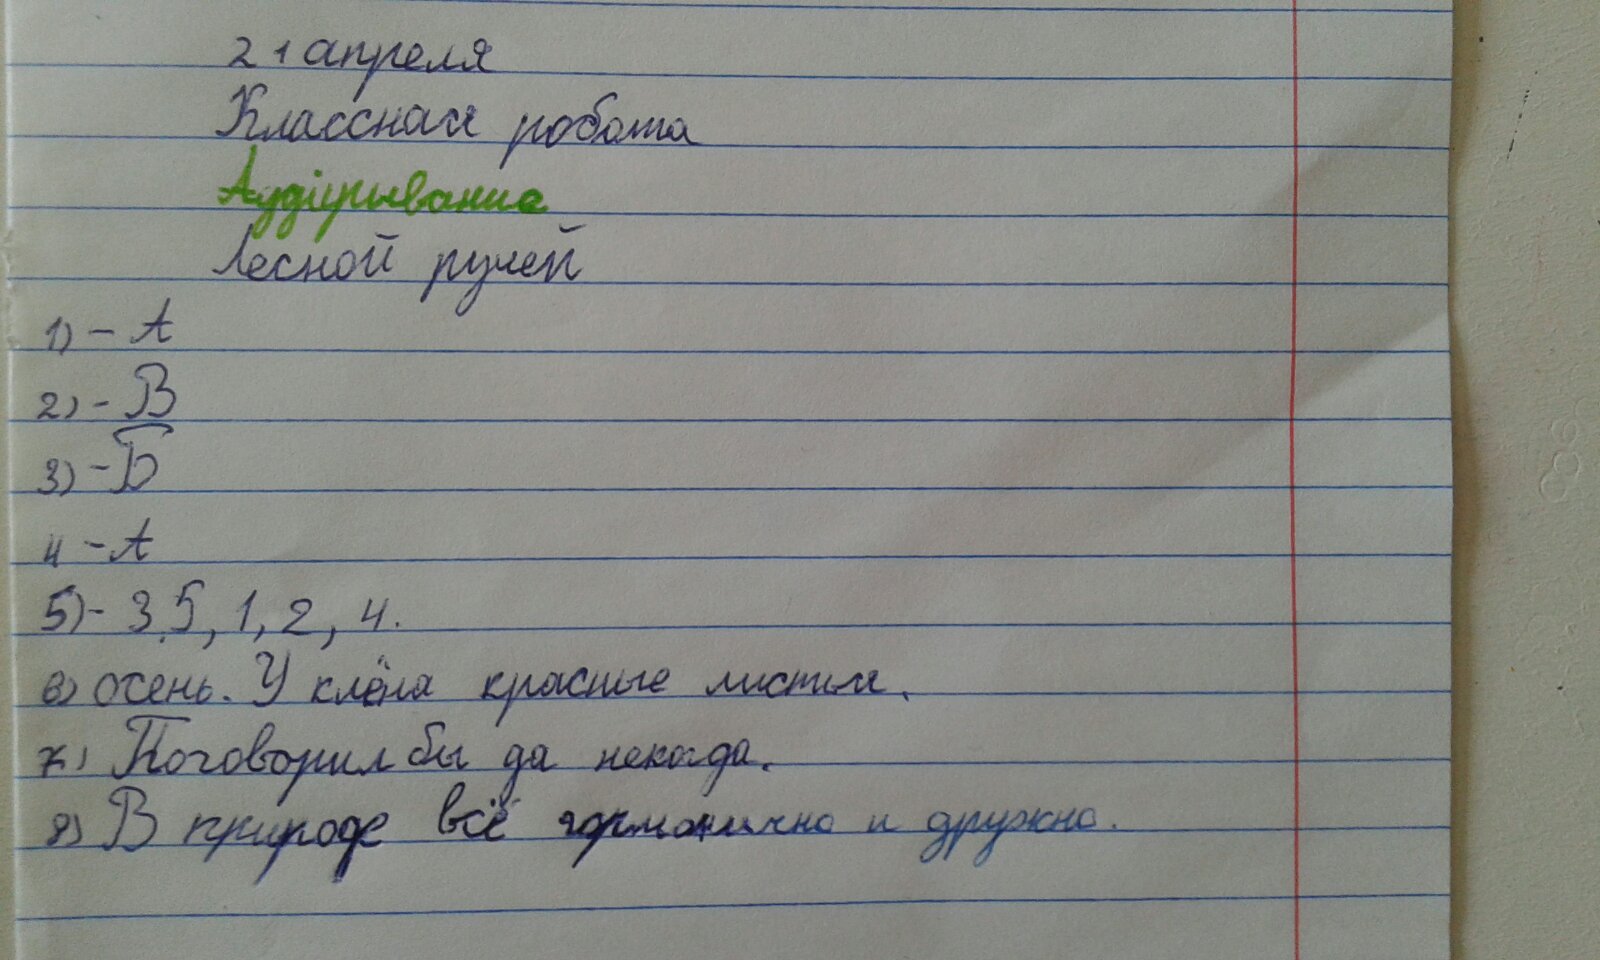 21 апреля
Классная робота
Аудіривание
Лесной ручей
1) - А
2) - В
3) - Б
4 - А
5) - 3, 5, 1, 2, 4.
6) осень. У клёна красные листья.
7) Поговорил бы да некогда.
8) В природе всё гармонично и дружно.